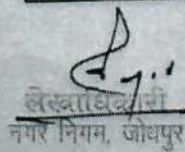 लेखाधिकारी
नगर निगम, जोधपुर